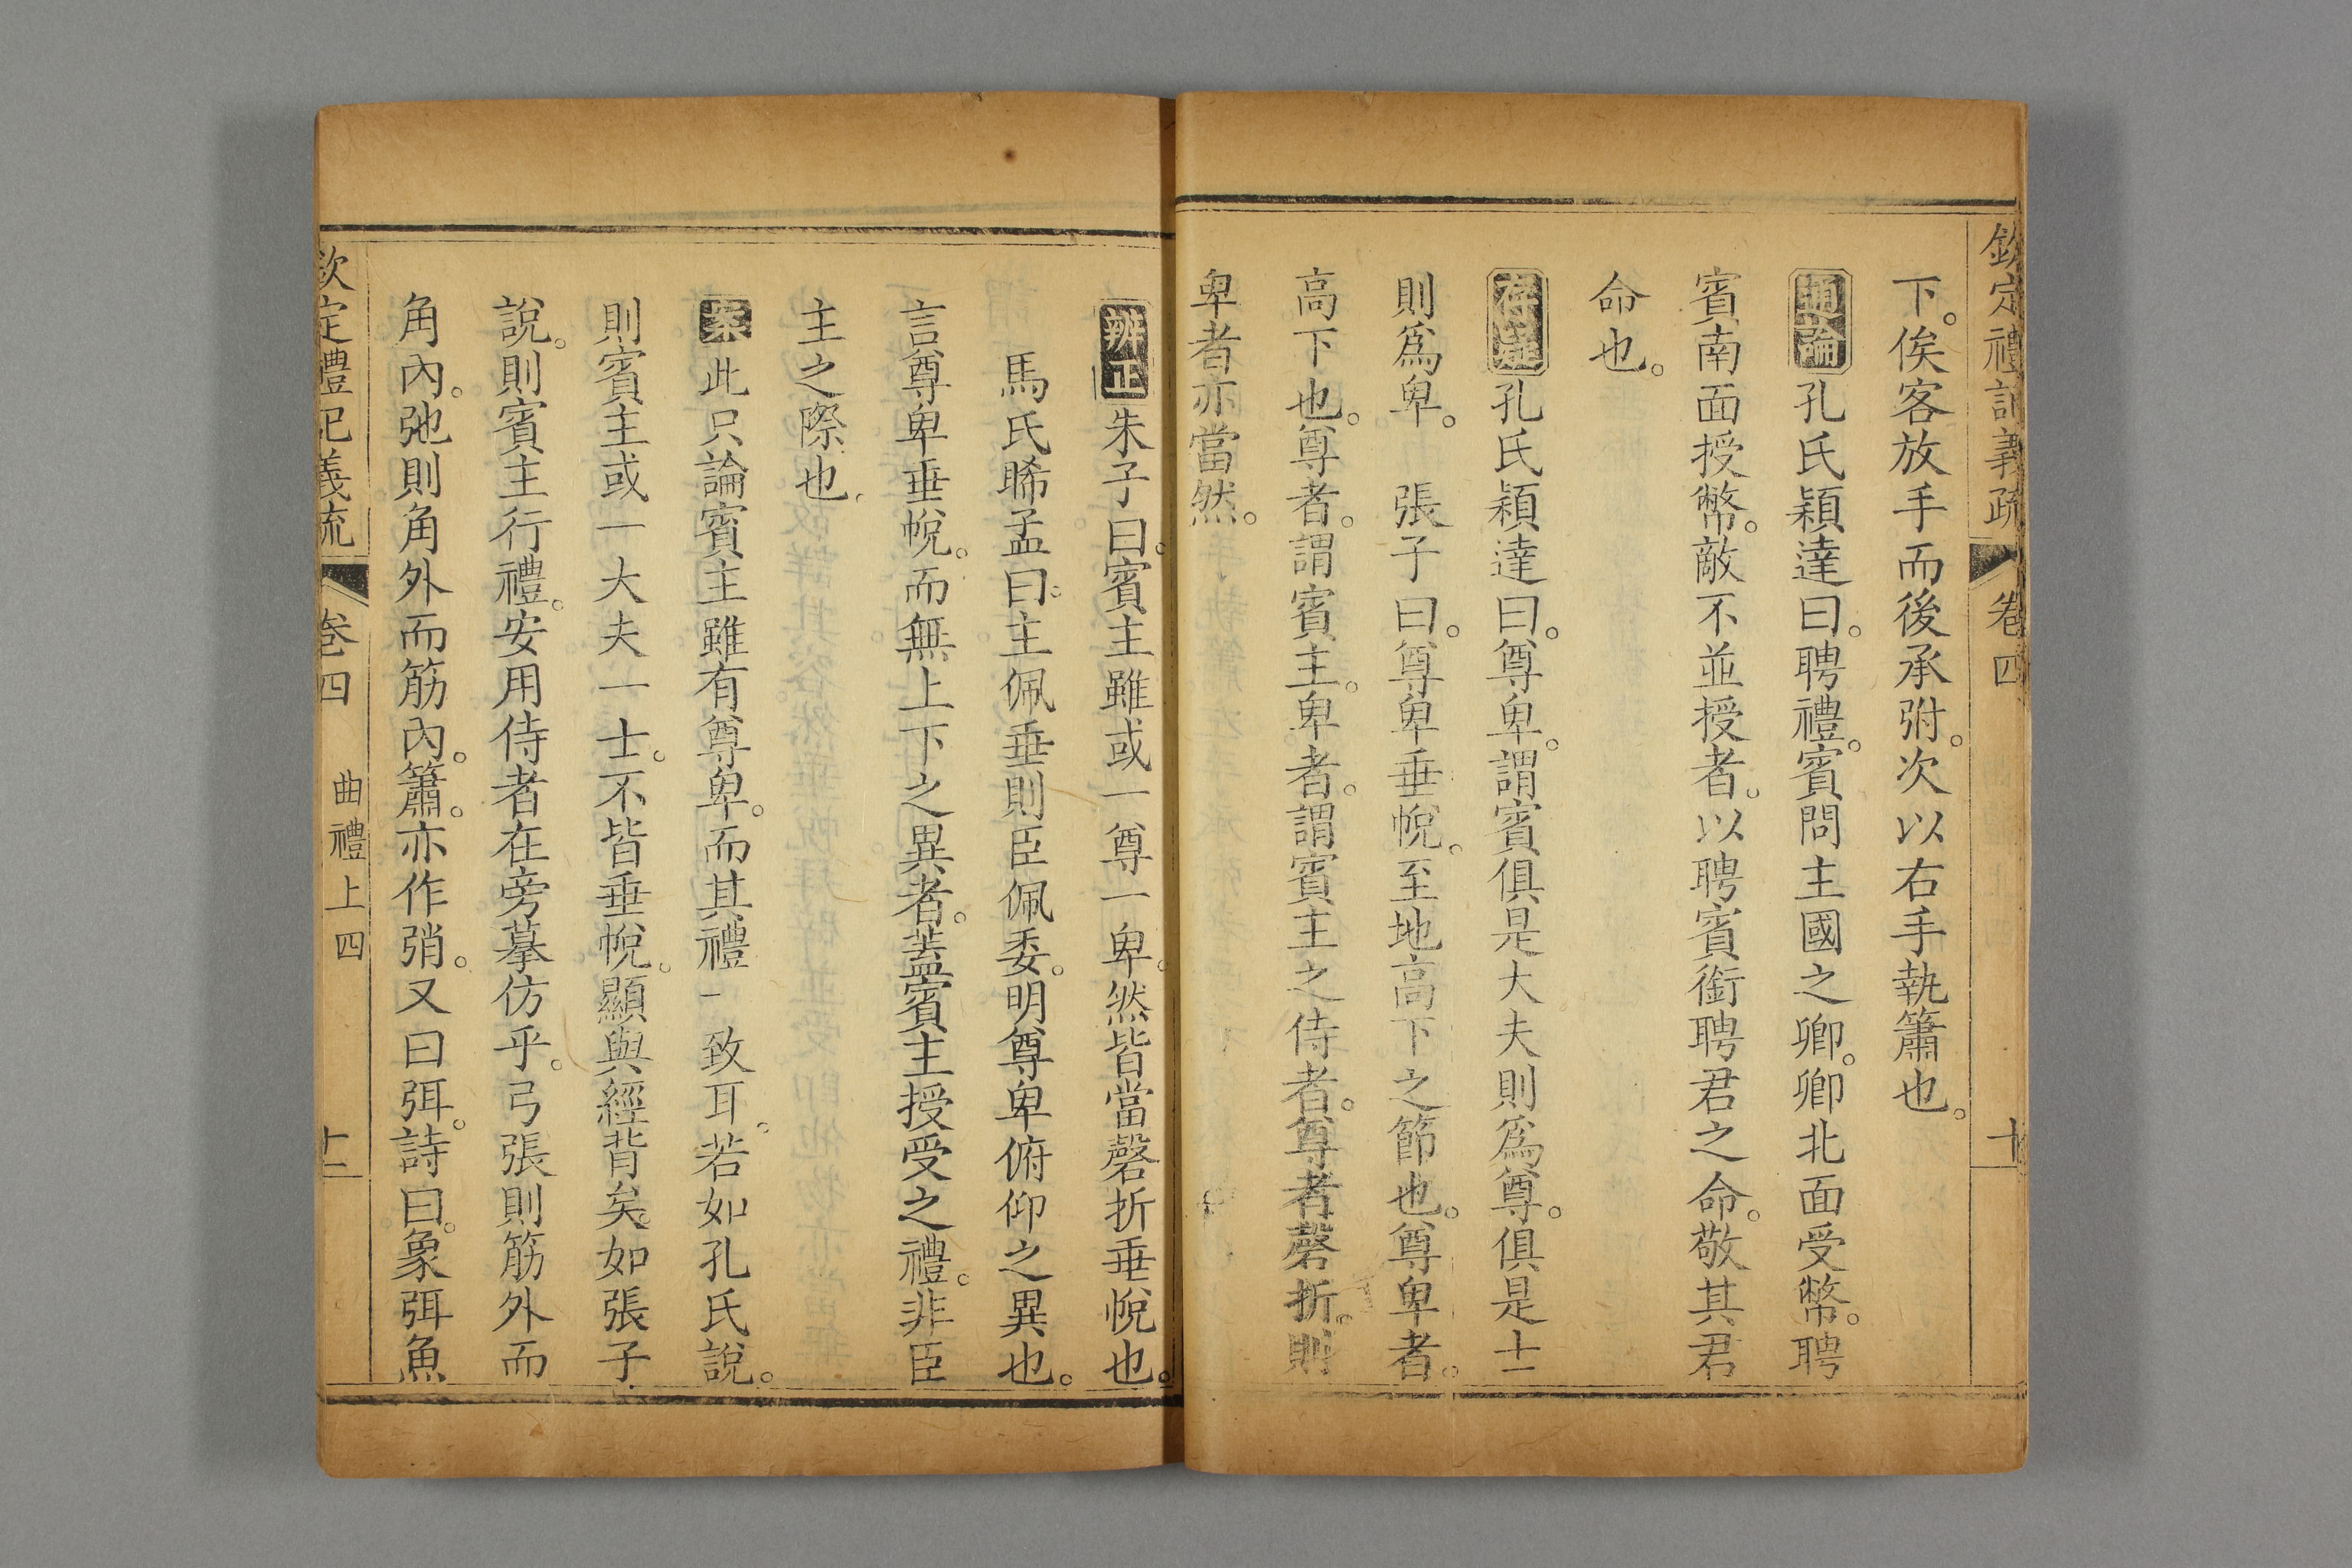 欽定禮記義疏 卷四 十
下。俟客放手而後承弣。次以右手執簫也。
通論孔氏穎達曰。聘禮。賓問主國之卿。卿北面受幣。聘
賓南面授幣。敵不並授者。以聘賓銜聘君之命。敬其君
命也。
存疑孔氏穎達曰。尊卑。謂賓俱是大夫則爲尊。俱是士
則爲卑。 張子曰。尊卑垂帨。至地高下之節也。尊卑者。
高下也。尊者。謂賓主。卑者。謂賓主之侍者。尊者磬折。則
卑者亦當然。
辨正朱子曰。賓主雖或一尊一卑。然皆當磬折垂帨也。
馬氏晞孟曰。主佩垂則臣佩委。明尊卑俯仰之異也。
言尊卑垂帨。而無上下之異者。蓋賓主授受之禮。非臣
主之際也。
案此只論賓主雖有尊卑。而其禮一致耳。若如孔氏說。
則賓主或一大夫一士。不皆垂帨。顯與經背矣。如張子
說。則賓主行禮。安用侍者在旁摹仿乎。弓張則筋外而
角內。弛則角外而筋內。簫。亦作弰。又曰弭。詩曰。象弭魚
欽定禮記義疏 卷四 曲禮上四 十一